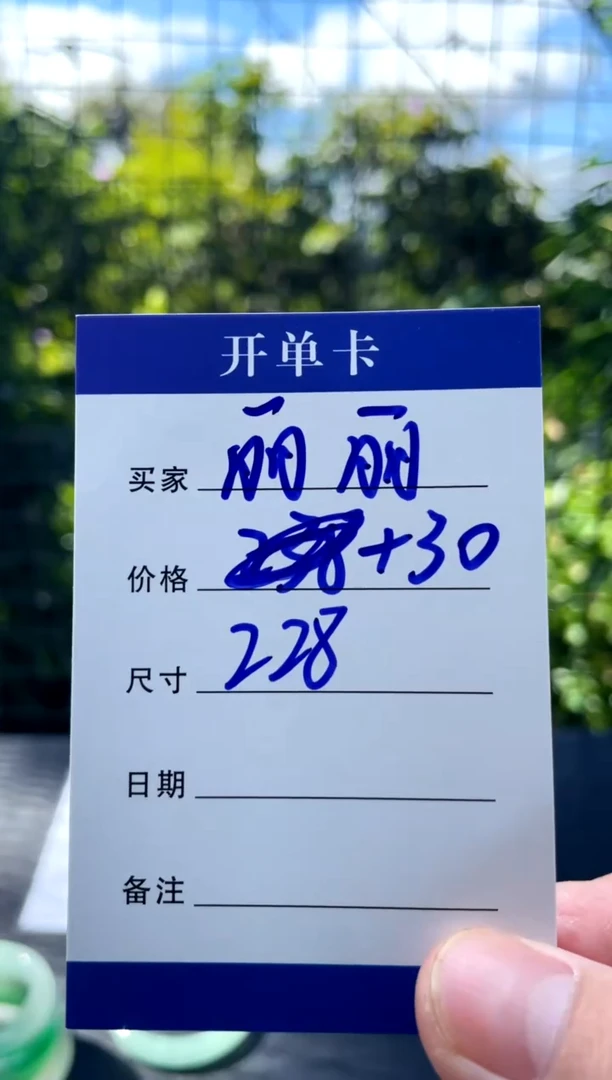 开单卡
买家 丽丽
价格 +30
尺寸 228
日期
备注